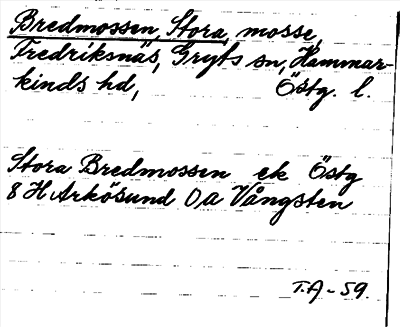 Bredmossen, Stora, mosse,
Fredriksnäs, Gryts sn, Hammar-
kinds hd, Östg. l.
Stora Bredmossen ek Östg
8 H Arkösund 0a Vångsten
T.A-59.